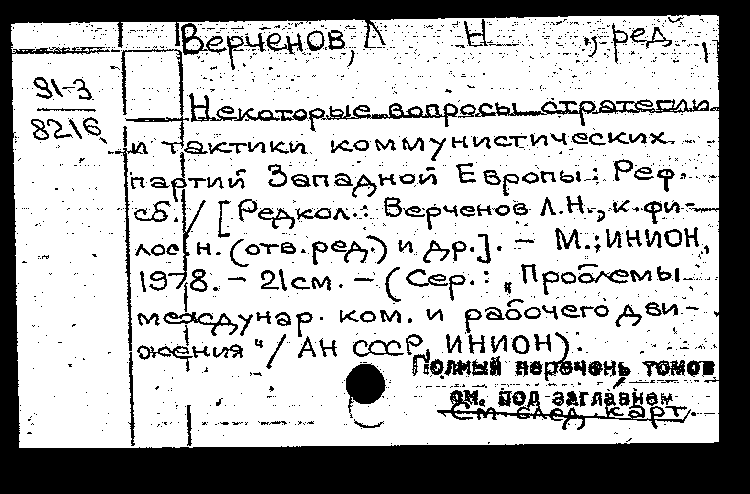 Верченов, Л Н , ред ,
91-3
8216
Некоторые вопросы стратегии
и тактики коммунистических
партий Западной Европы: Реф.
сб. / [Редкол.: Верченов Л.Н., к. фи-
лос. н. (отв. ред.) и др.]. – М.; ИНИОН,
1978. – 21 см. – (Сер.: "Проблемы
междунар. ком. и рабочего дви-
жения" / АН СССР, ИНИОН).
Полный перечень томов
см. под заглавием
См. след. карт.